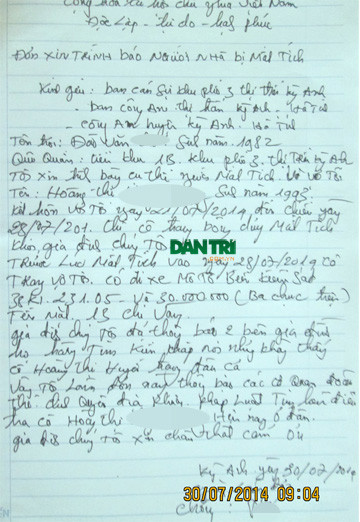 Cộng hòa xã hội chủ nghĩa Việt Nam
Độc Lập - Tự do - hạnh phúc
Đơn xin trình báo Người Nhà bị Mất Tích
Kính gửi: ban cán sự khu phố 3 thị trấn Kỳ Anh
- ban công An thị trấn Kỳ Anh - Hà Tĩnh
- công An huyện Kỳ Anh. Hà Tĩnh
Tên tôi: Đào Văn Sinh năm. 1982
Quê Quán: tiểu khu 1B khu phố 3. thị Trấn Kỳ Anh
Tôi xin trình bày cụ thể như sau Vợ Tôi
Tên: Hoàng thị Sinh năm 1993
Kết hôn Vợ Tôi ngày 07/2014, đến chiều ngày
28/07/201.
gia đình chúng Tôi
DÂN TRÍ
Trước Lúc Mất Tích vào ngày 28/07/2014 có
vợ Tôi. có đi xe Mô Tô Biển Kiểm Soát
38K1. 231.05 Và 30.000.000 (Ba chục triệu)
gia đình chúng Tôi đã thông báo 2 bên gia đình
Tìm Kiếm khắp nơi nhưng không thấy
cô Hoàng Thị Huyền đang ở đâu cả
Vậy Tôi Làm đơn này thông báo các cơ Quan đoàn
thể. chính Quyền địa
cô Hoàng Thị hiện nay ở đâu.
gia đình chúng Tôi xin chân thành cảm ơn
Kỳ Anh ngày 30/07/2014
Chồng
30/07/2014 09:04